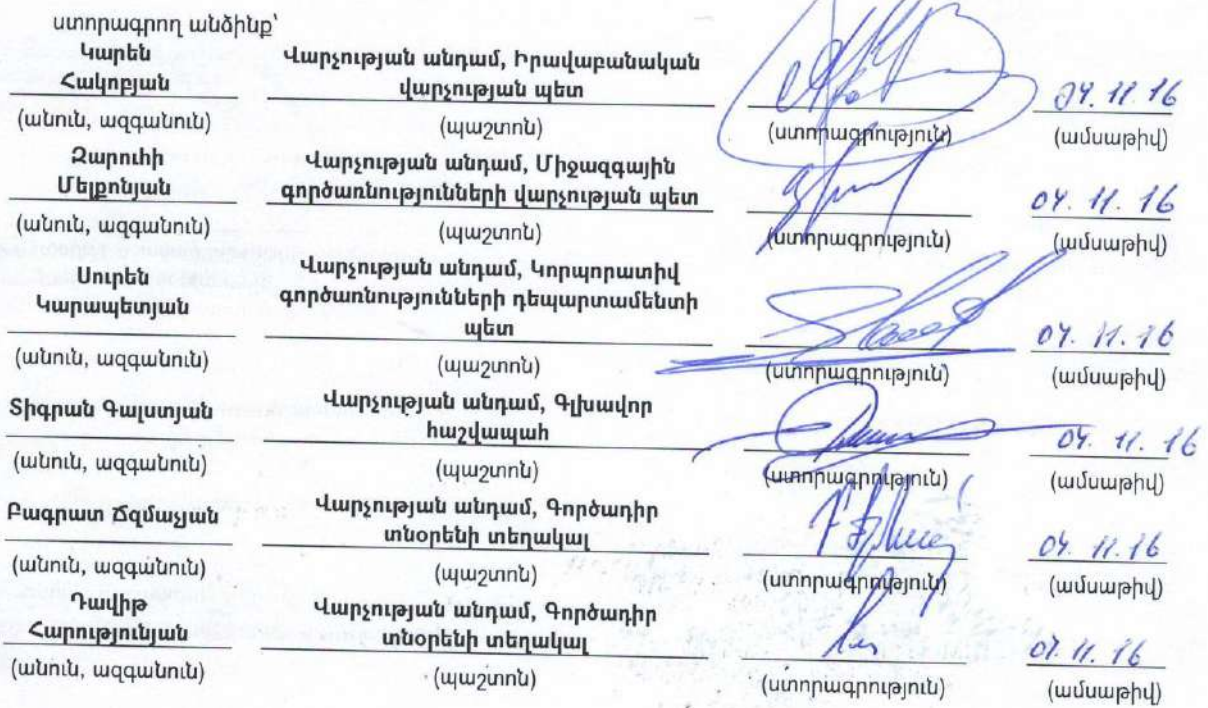 ստորագրող անձինք՝
Կարեն Վարչության անդամ, Իրավաբանական
Հակոբյան վարչության պետ 04.11.16
(անուն, ազգանուն) (պաշտոն) (ստորագրություն) (ամսաթիվ)
Զարուհի Վարչության անդամ, Միջազգային
Մելքոնյան գործառնությունների վարչության պետ 04.11.16
(անուն, ազգանուն) (պաշտոն) (ստորագրություն) (ամսաթիվ)
Սուրեն Վարչության անդամ, Կորպորատիվ
Կարապետյան գործառնությունների դեպարտամենտի
պետ 04.11.16
(անուն, ազգանուն) (պաշտոն) (ստորագրություն) (ամսաթիվ)
Տիգրան Գալստյան Վարչության անդամ, Գլխավոր
հաշվապահ 04.11.16
(անուն, ազգանուն) (պաշտոն) (ստորագրություն) (ամսաթիվ)
Բագրատ Ճզմաչյան Վարչության անդամ, Գործադիր
տնօրենի տեղակալ 04.11.16
(անուն, ազգանուն) (պաշտոն) (ստորագրություն) (ամսաթիվ)
Դավիթ Վարչության անդամ, Գործադիր
Հարությունյան տնօրենի տեղակալ 04.11.16
(անուն, ազգանուն) (պաշտոն) (ստորագրություն) (ամսաթիվ)